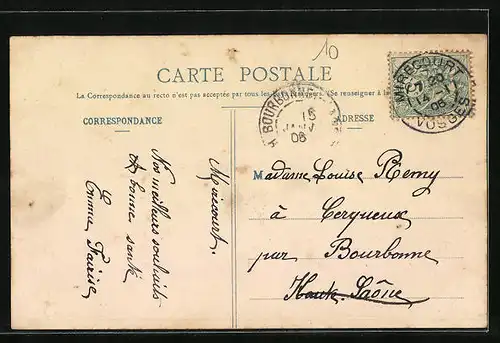 10
CARTE POSTALE
La Correspondance au recto n'est pas acceptée par tous les
(Se renseigner à la
CORRESPONDANCE
ADRESSE
MIRECOURT
20
14 -1
06
VOSGES
BOURBONNE
15
JANV
06
Mirecourt.
Nos meilleurs souhaits
& bonne santé
Emma
Madame Louise Remy
à Cerqueux
par Bourbonne
Haute-Saône